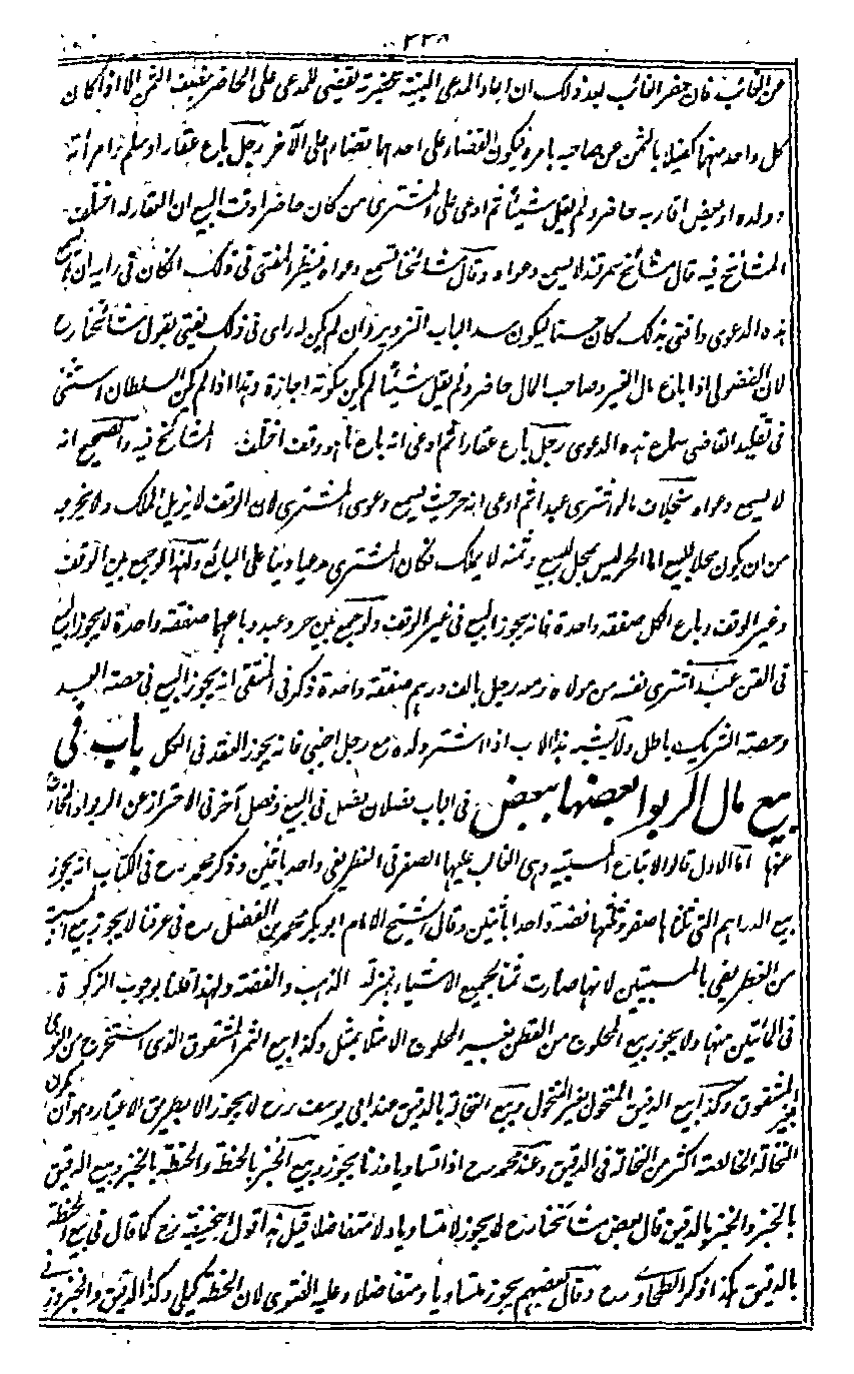 ٢٣٨
عن الغائب فان حضر الغائب بعد ذلك ان اعاد المدعى البينة بحضرته يقضى للمدعى على الحاضر بنصف الثمن الا اذا كان
كل واحد منهما كفيلا بالثمن عن صاحبه بامره فيكون القضاء على احدهما قضاء على الآخر رجل باع عقارا وسلم وامرأته
وولده او بعض اقاربه حاضر ولم يقل شيئا ثم ادعى على المشترى من كان حاضرا وقت البيع ان العقار له اختلف
المشائخ فيه قال مشائخ سمرقند لا يسمع دعواه وقال مشائخنا تسمع دعواه فينظر المفتى فى ذلك ان كان فى رايه ان لا يسمع
هذه الدعوى وافتى بذلك كان حسنا ليكون سد الباب التزوير وان لم يكن له راى فى ذلك يفتى بقول مشائخنا رح
لان الفضولى اذا باع مال الغير وصاحب المال حاضر ولم يقل شيئا لم يكن سكوته اجازة وهذا اذا لم يكن السلطان استثنى
فى تقليد القاضى سماع هذه الدعوى رجل باع عقارا ثم ادعى انه باع ما هو وقف اختلف المشائخ فيه والصحيح انه
لا يسمع دعواه بخلاف ما لو اشترى عبدا ثم ادعى انه حر حيث يسمع دعوى المشترى لان الوقف لا يزيل الملك ولا يخرجه
من ان يكون محلا للبيع اما الحر ليس بمحل للبيع وثمنه لا يملك فكان المشترى مدعيا دينا على البائع ولهذا لو جمع بين الوقف
وغير الوقف وباع الكل صفقة واحدة فانه يجوز البيع فى غير الوقف ولو جمع بين حر وعبد وباعهما صفقة واحدة لا يجوز البيع
فى القن عبد اشترى نفسه من مولاه ومعه رجل بالف درهم صفقة واحدة ذكر فى المنتقى انه يجوز البيع فى حصة العبد
وحصة الشريك باطل ولا يشبه هذا الاب اذا اشترى ولده مع رجل اجنبى فانه يجوز العقد فى الكل باب فى
بيع مال الربوا بعضها ببعض فى الباب فصلان فصل فى البيع وفصل آخر فى الاحتراز عن الربوا
عنها اما الاول قالوا لا تباع المسبية وهى الغالب عليها الصفر فى الغطريفى واحد باثنين وذكر محمد رح فى الكتاب انه يجوز
بيع الدراهم التى ثلثاها صفر وثلثها فضة واحدا باثنين وقال الشيخ الامام ابو بكر محمد بن الفضل رح فى عرفنا لا يجوز بيع
من الغطريفى بالمسبيتين لانها صارت ثمنا لجميع الاشياء بمنزلة الذهب والفضة ولهذا قلنا بوجوب الزكوة
فى المائتين منها ولا يجوز بيع المحلوج من القطن بغير المحلوج الا مثلا بمثل وكذا بيع التمر المشقوق الذى استخرج من النوى
بغير المشقوق وكذا بيع الدقيق المنخول بغير المنخول وبيع النخالة بالدقيق عند ابى يوسف رح لا يجوز الا بطريق الاعتبار وهو ان تكون
النخالة الخالصة اكثر من النخالة فى الدقيق وعند محمد رح اذا تساويا وزنا يجوز وبيع الخبز بالحنطة والحنطة بالخبز وبيع الدقيق
بالخبز والخبز بالدقيق قال بعض مشائخنا رح لا يجوز لا متساويا ولا متفاضلا قيل هذا قول ابى حنيفة رح كما قال فى بيع الحنطة
بالدقيق هكذا ذكر الطحاوى رح وقال بعضهم يجوز متساويا ومتفاضلا وعليه الفتوى لان الحنطة كيلى وكذا الدقيق والخبز وزنى